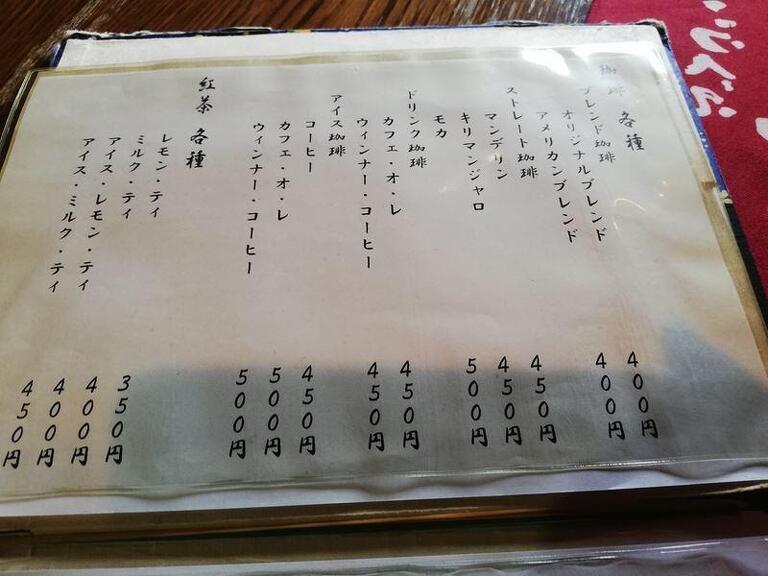 珈琲 各種
ブレンド珈琲
オリジナルブレンド 400円
アメリカンブレンド 400円
ストレート珈琲
マンデリン 450円
キリマンジャロ 450円
モカ 500円
ドリンク珈琲
カフェ・オ・レ 450円
ウィンナー・コーヒー 450円
アイス珈琲
コーヒー 450円
カフェ・オ・レ 500円
ウィンナー・コーヒー 500円
紅茶 各種
レモン・ティ 350円
ミルク・ティ 400円
アイス・レモン・ティ 400円
アイス・ミルク・ティ 450円